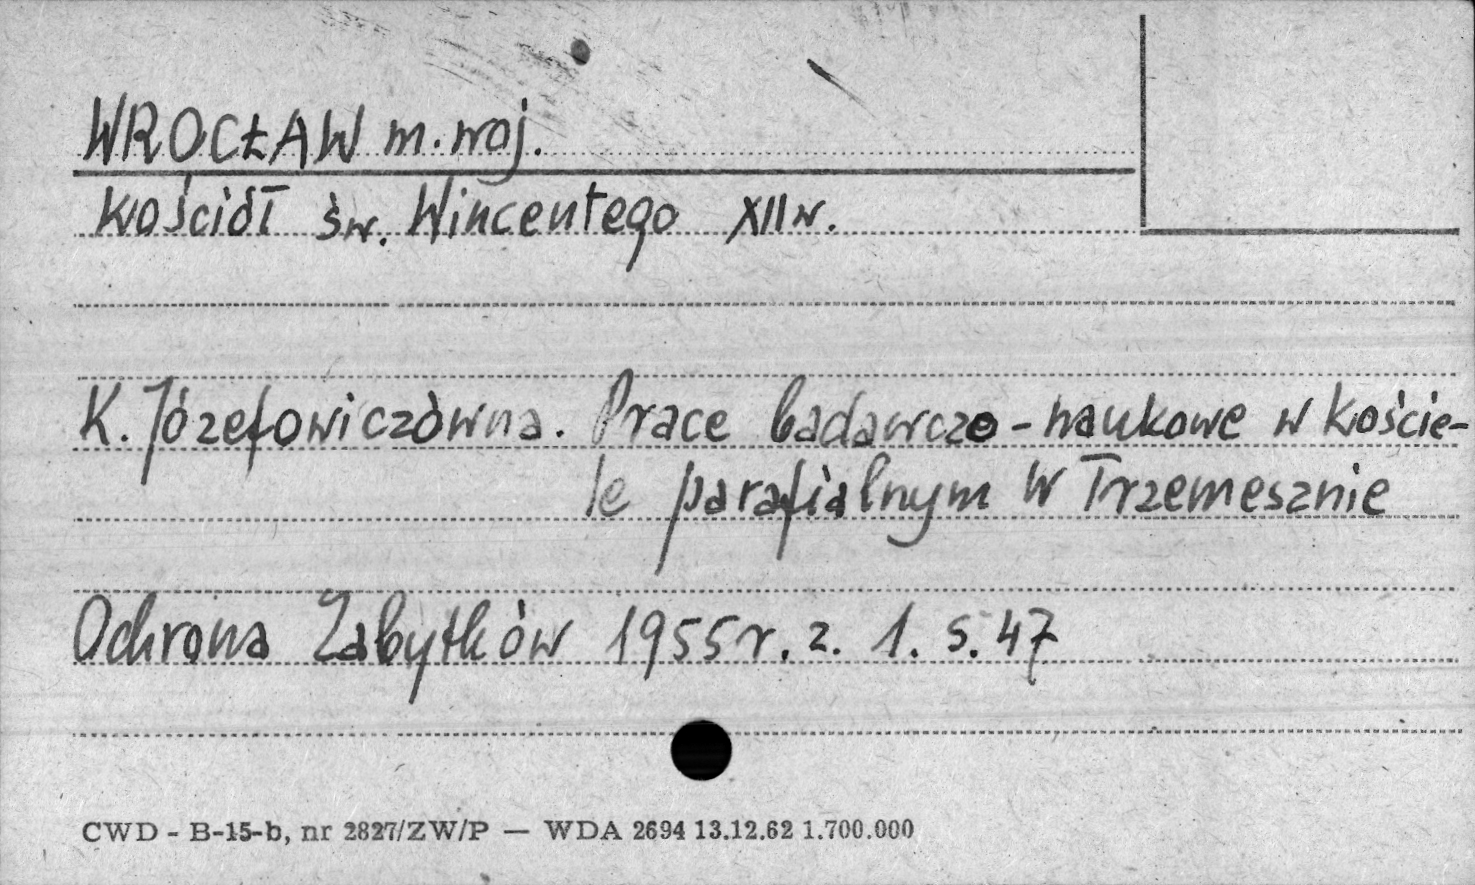 WROCŁAW m. woj.
Kościół św. Wincentego XII w.
K. Józefowiczówna. Prace badawczo-naukowe w Koście-
le parafialnym w Trzemesznie
Ochrona Zabytków 1955 r. z. 1. s. 47
CWD - B-15-b, nr 2827/ZW/P — WDA 2694 13.12.62 1.700.000